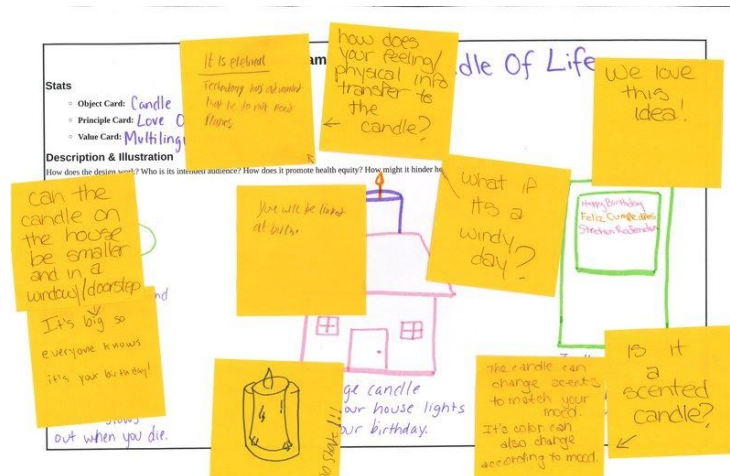 am
dle Of Life
Stats
Object Card: Candle
Principle Card: Love O
Value Card: Multiling
Description & Illustration
How does the design work? Who is its intended audience? How does it promote health equity? How might it hinder he
It is eternal
Technology has advanced
to not need
flames
how does
your feeling/
physical info
transfer to
the
candle?
We love
this
idea!
can the
candle on
the house
be smaller
and in a
window/doorstep
It's big so
everyone knows
it's your birthday!
You will be
at
What if
it's a
windy
day?
Happy Birthday
Feliz Cumpleaños
nd
out when you die.
ge candle
our house lights
our birthday.
The candle can
change scents
to match your
mood.
It's color can
also change
according to mood.
Is it
a
scented
candle?